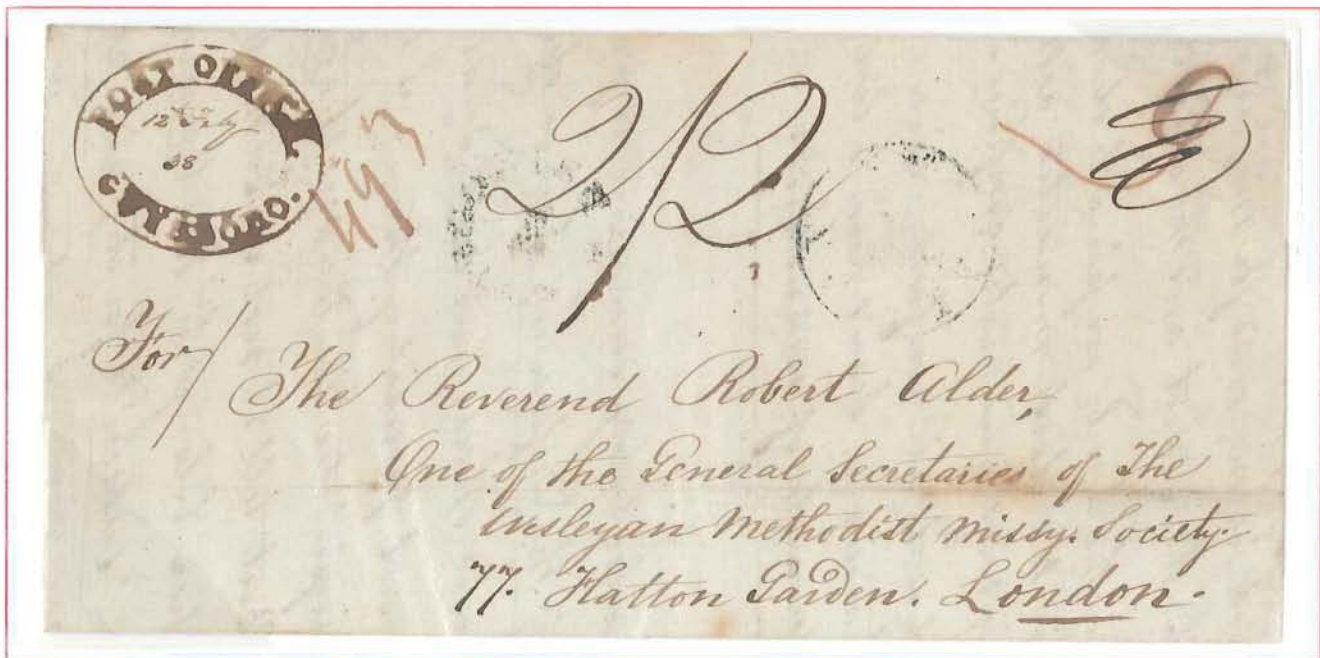 POST OFFICE
12 July
38
GUYSBORO.
2/2
For/
The Reverend Robert Alder,
One of the General Secretaries of The
Wesleyan Methodist Missy. Society.
77. Hatton Garden. London.